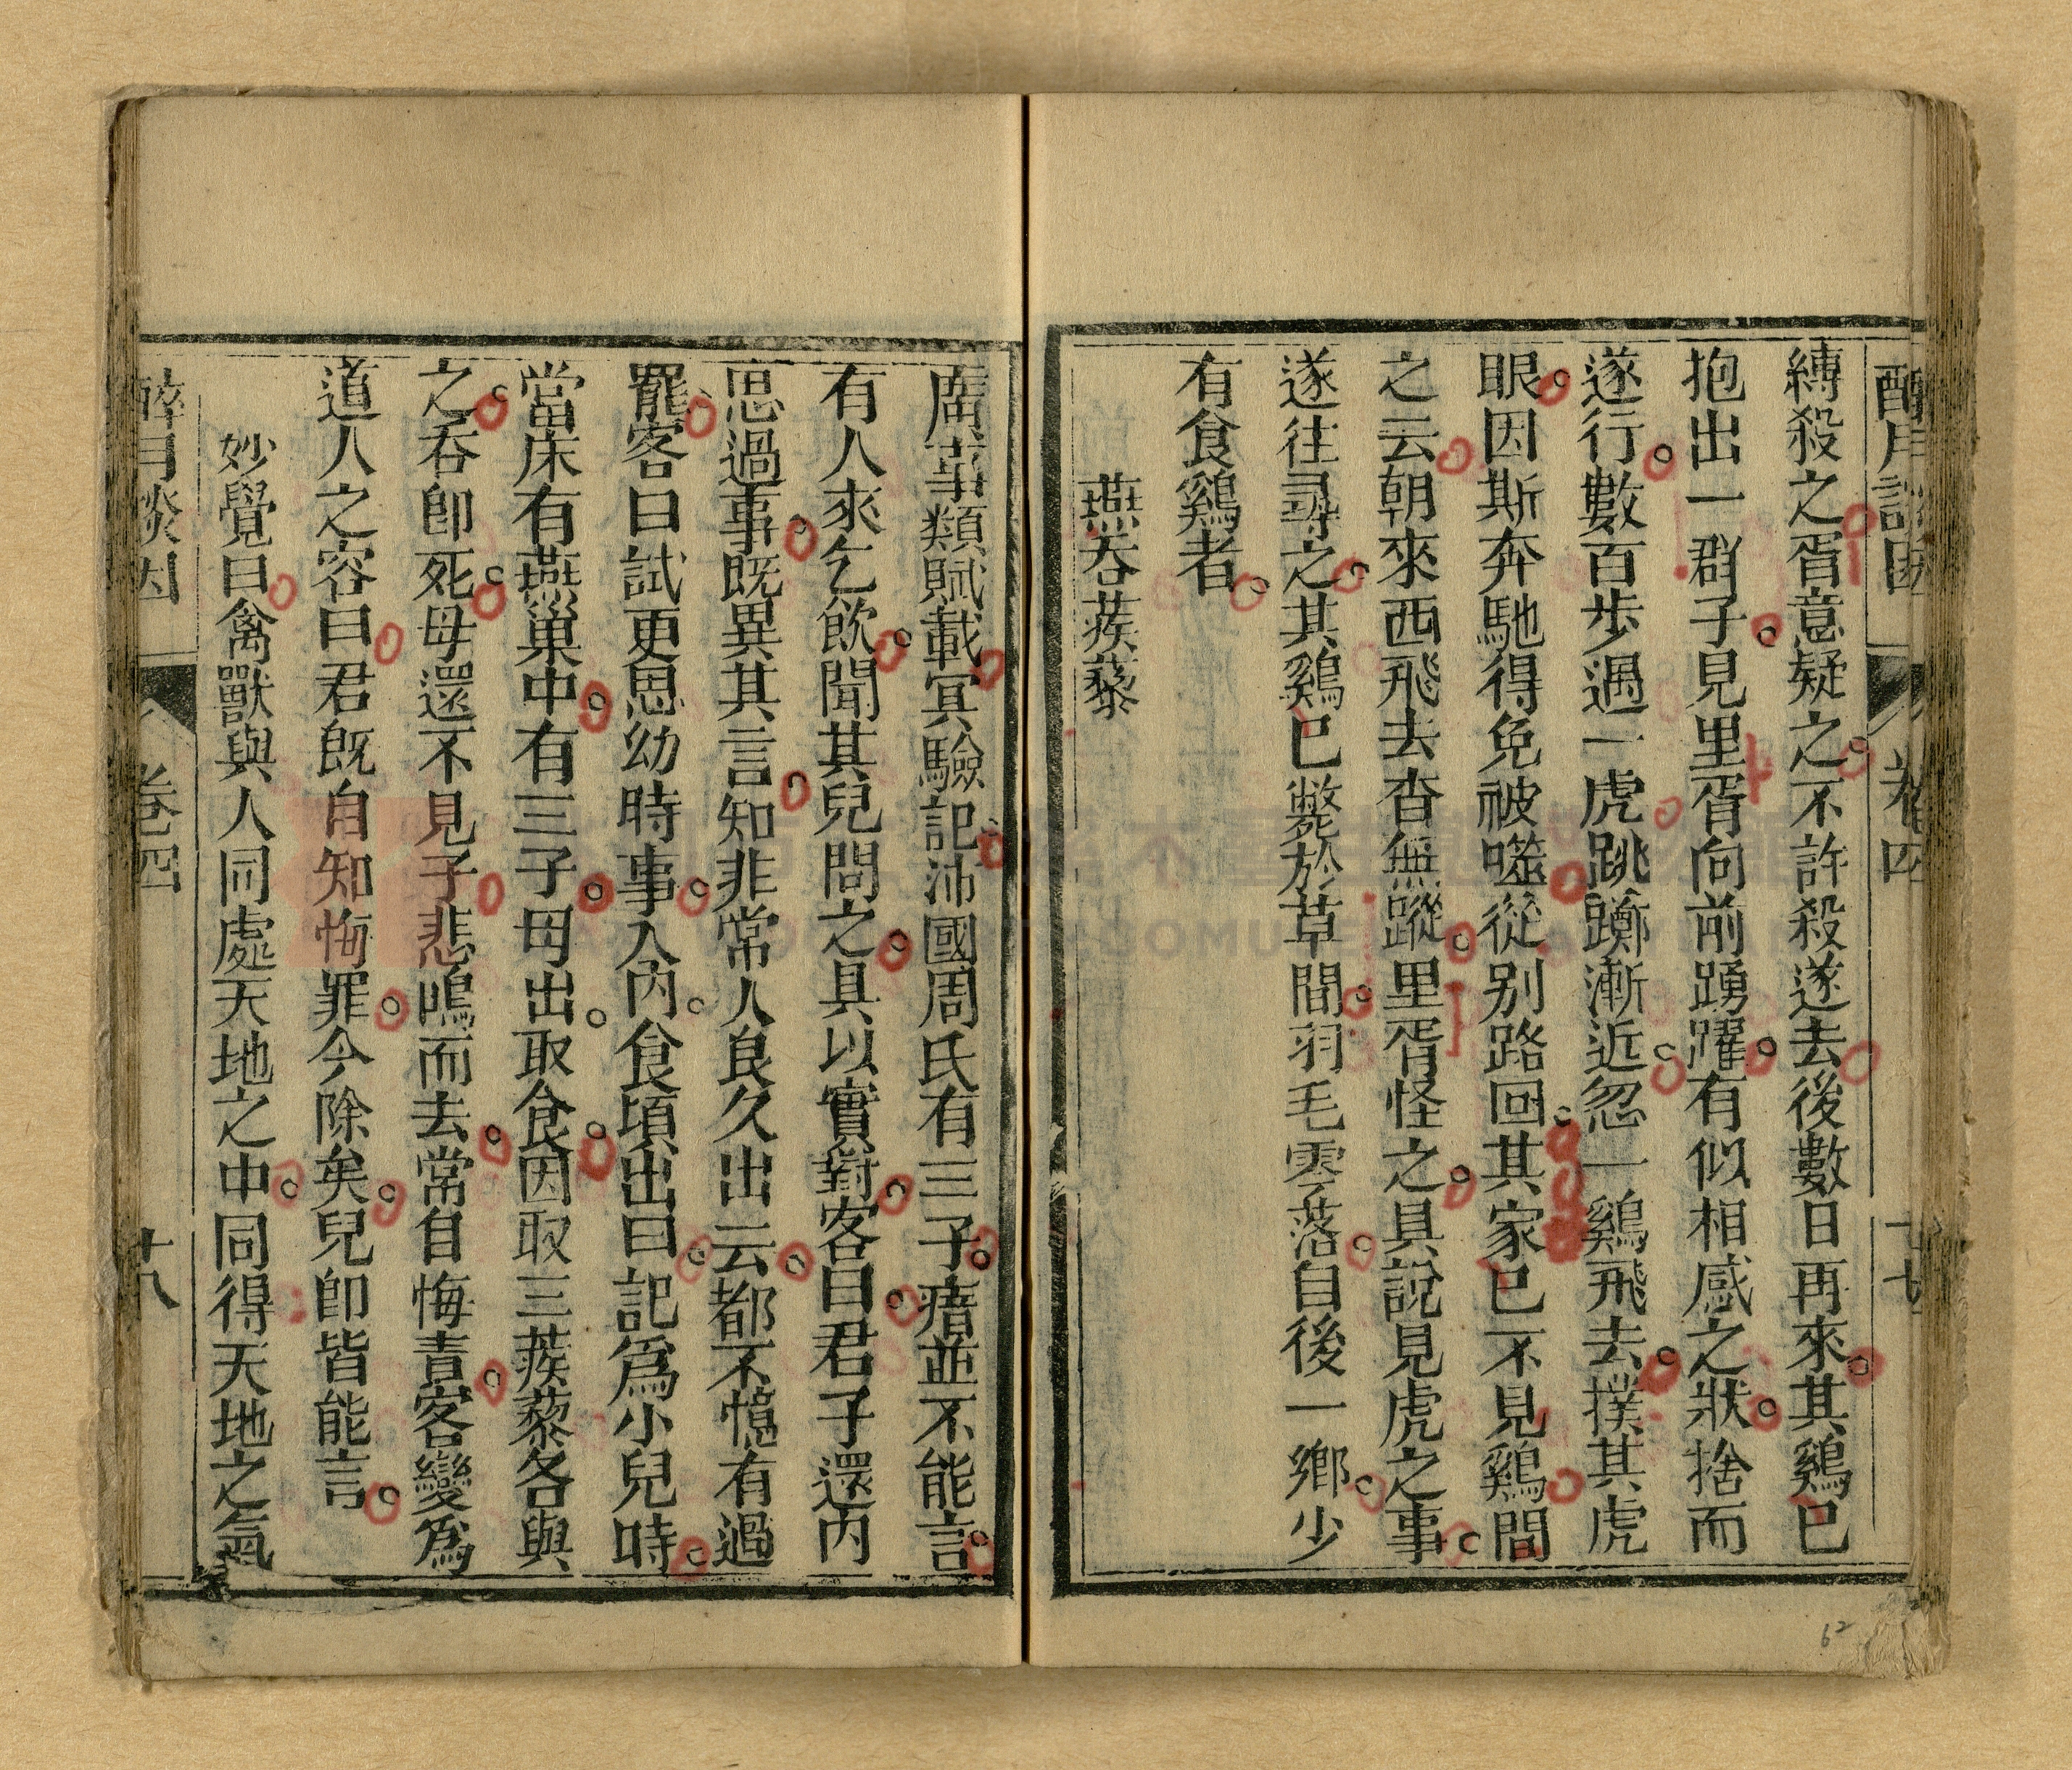 縛殺之胥意疑之不許殺遂去後數日再來其鷄已
抱出一群子見里胥向前踴躍有似相感之狀捨而
遂行數百步遇一虎跳躑漸近忽一鷄飛去撲其虎
眼因斯奔馳得免被噬從别路回其家已不見鷄間
之云朝來西飛去杳無蹤里胥怪之具說見虎之事
遂往尋之其鷄已斃於草間羽毛零落自後一鄉少
有食鷄者
燕吞蒺藜
廣事類賦載冥驗記沛國周氏有三子瘖並不能言
有人來乞飲聞其兒問之具以實對客曰君子還内
思過事既異其言知非常人良久出云都不憶有過
罷客曰試更思幼時事入内食頃出曰記爲小兒時
當床有燕巢中有三子母出取食因取三蒺藜各與
之吞卽死母還不見子悲鳴而去常自悔責客變爲
道人之容曰君旣自知悔罪今除矣兒卽皆能言
妙覺曰禽獸與人同處天地之中同得天地之氣
卷四
十八